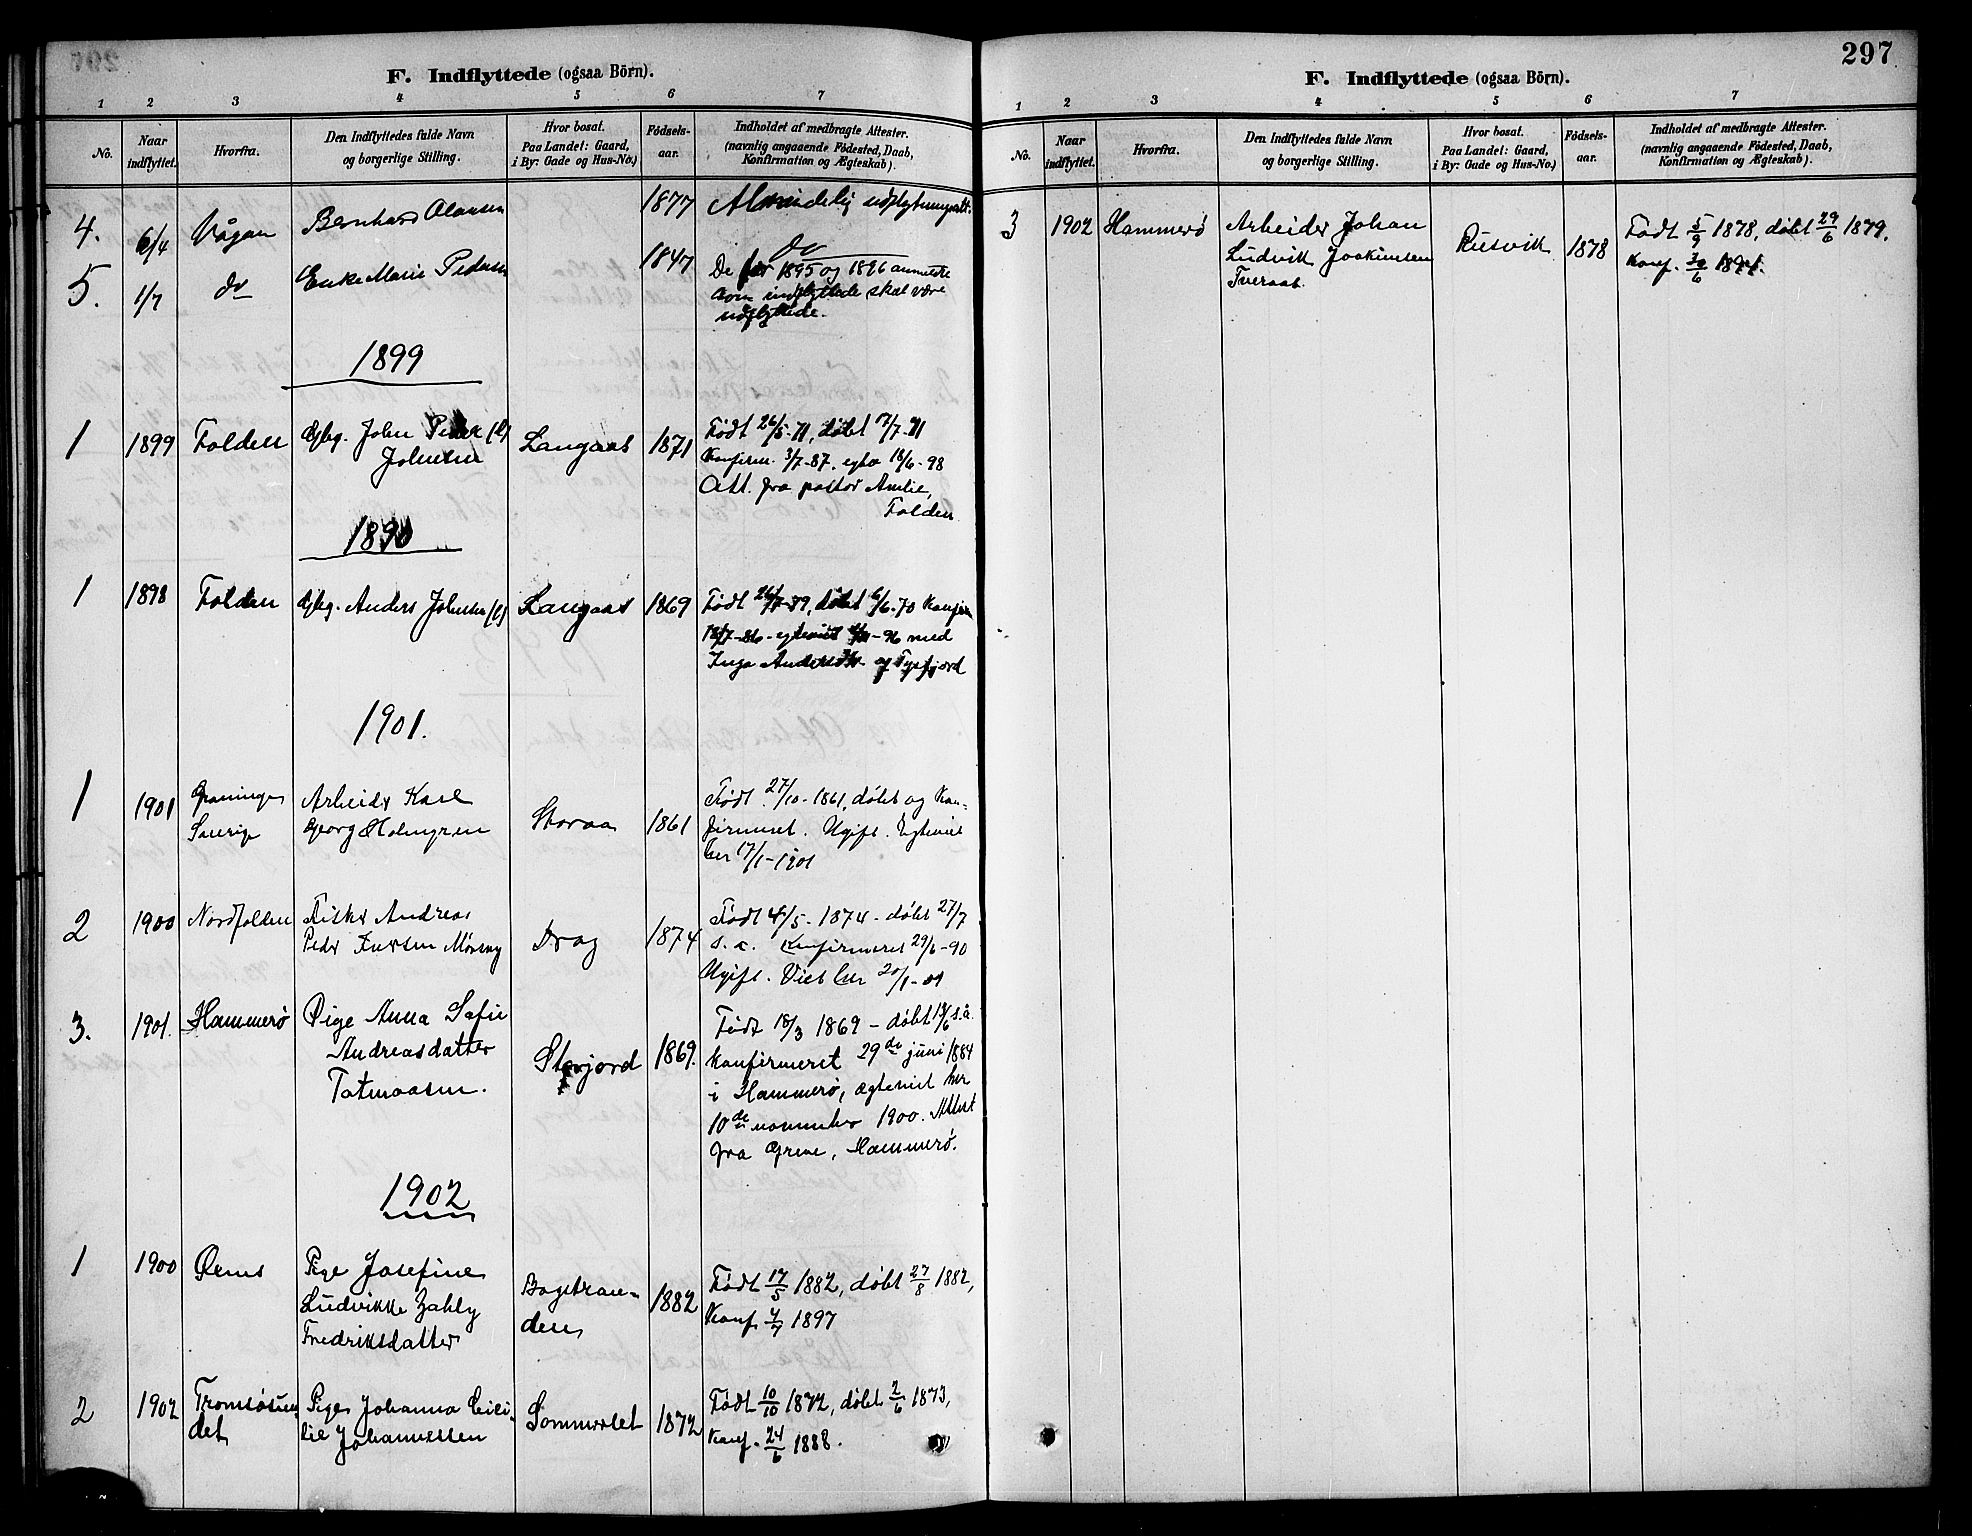 F. Indflyttede (ogsaa Börn).
1 2 3 4 5 6 7
No.
Naar indflyttet.
Hvorfra.
Den Indflyttedes fulde Navn
og borgerlige Stilling.
Hvor bosat.
Paa Landet: Gaard,
i By: Gade og Hus-No.)
Fødsels-
aar.
Indholdet af medbragte Attester.
(navnlig angaaende Fødested, Daab,
Konfirmation og Ægteskab).
4. 6/4 Vågan Bernhard Olausen 1877 Almindelig udflytningsatt.
5. 1/7 do Marie Pedersen 1847 do
De for 1895 og 1896 anmeldte
som indflyttede skal være
udflyttede.
1899
1 1899 Folden Gbg. John Peder (l) Langaas 1871 Født 26/5-71, døbt 17/7-71
Johnsen Konfirm. 3/7-87. egtev 18/6-98
Att. fra pastor Amlie,
Folden
1890
1 1898 Folden Gbg. Anders Johnsen (l) Langaas 1869 Født døbt 6/6-70 Konfirm
18/7-86 - egteviet -96 med
Inga af Tysfjord
1901.
1 1901 Arbeider Karl Storaa 1861 Født 27/10-1861, døbt og Kon-
Sverige Georg Holmgren firmeret. Ugift. Egteviet
her 17/1-1901
2 1900 Nordfolden Fisker Andreas Drag 1874 Født 4/5-1874 - døbt 27/7
Peder s. a. Konfirmeret 29/6-90
Ugift. Viet her 20/1-01
3. 1901. Hammerø Pige Anna Sofie Storjord 1869. Født 18/3 1869 - døbt 13/6 s.a.
Andreasdatter konfirmeret 29de juni 1884
i Hammerø, ægteviet her
10de november 1900. Attest
fra Greve, Hammerø.
1902
1 1900 Pige Josefine Bogstran- 1882 Født 17/5 1882, døbt 27/8 1882,
Ludvikke Zahly den Konf. 4/7 1897
Fredriksdatter
2 1902 Tromsøsun Pige Johanna Cesi- Sommerset 1872 Født 10/10 1872, døbt 2/6 1873,
det lie Johannessen Konf. 24/6 1888.
297
F. Indflyttede (ogsaa Börn).
1 2 3 4 5 6 7
No.
Naar indflyttet.
Hvorfra.
Den Indflyttedes fulde Navn
og borgerlige Stilling.
Hvor bosat.
Paa Landet: Gaard,
i By: Gade og Hus-No.)
Fødsels-
aar.
Indholdet af medbragte Attester.
(navnlig angaaende Fødested, Daab,
Konfirmation og Ægteskab).
3 1902 Hammerø Arbeider Johan Rusvik 1878 Født 5/9 1878, døbt 29/6 1879.
Ludvik Joakimsen Konf. 30/6 1894.
Tveraa